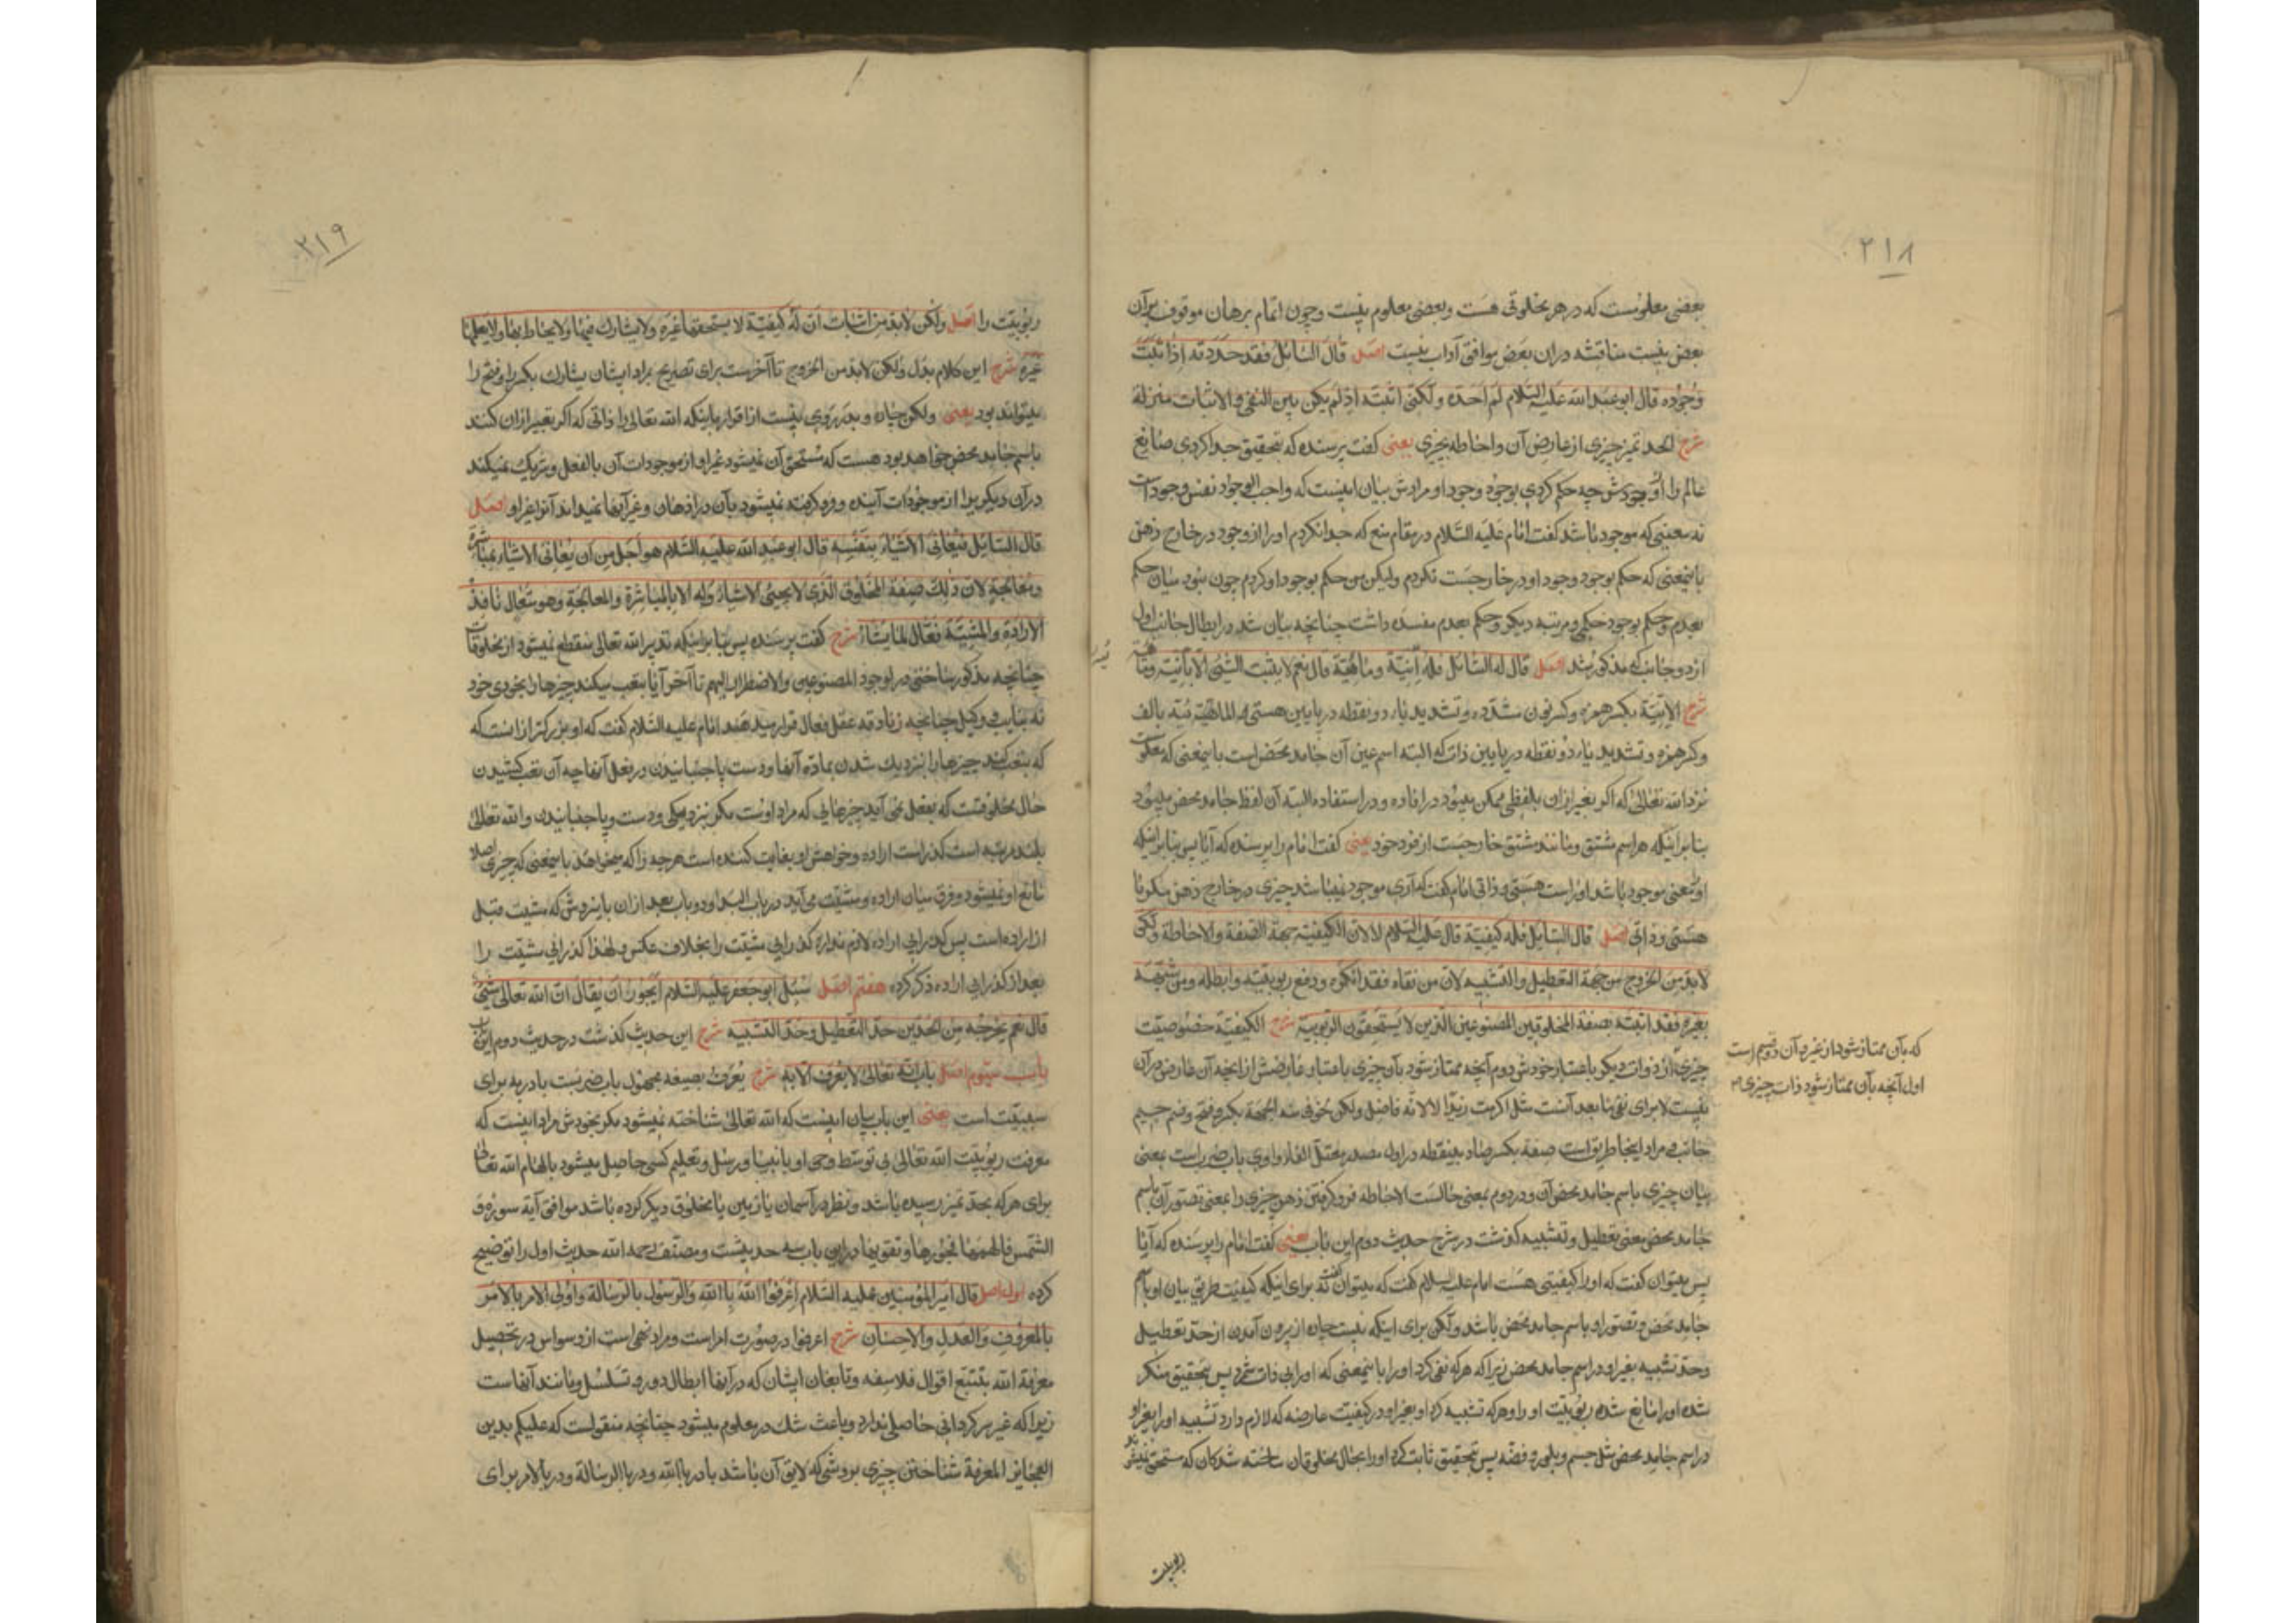 ۲۱۸
بعضی معلومست که در هر مخلوقی هست و بعضی معلوم نیست و چون اتمام برهان موقوف بر آن
بعض نیست مناقشه در ان بعض موافق آداب نیست اصل قال السائل فقد حددته اذا ثبتَّ
وجوده قال ابو عبد الله علیه السلام لم احده و لکنی اثبته اذ لم یکن بین النفی و الاثبات منزلة
شرح الحد تمیز چیزی از عارض آن و احاطه بچیزی یعنی گفت پرسنده که بتحقیق جدا کردی صانع
عالم را از وجودش چه حکم کردی بوجود وجود او مرادش بیان اینست که واجب الوجود نفس وجود است
نه بمعنیی که موجود باشد گفت امام علیه السلام در مقام منع که جدا نکردم او را از وجود در خارج ذهن
باینمعنی که حکم بوجود وجود او در خارجست نکردم و لیکن من حکم بوجود او کردم چون نبود میان حکم
بعدم و حکم بوجود حکمی و مرتبه دیگر و حکم بعدم مفسده داشت چنانچه بیان شد در ابطال جانب اول
از دو جانب که مذکور شد اصل قال له السائل فله انّیة و مائیة قال نعم لا یثبت الشیئ الا بانّیة و مائیة
شرح الانّیة بکسر همزه و کسر نون مشدّده و تشدید یاء دو نقطه در پایین هستی الماهیة بالف
و کسر همزه و تشدید یاء دو نقطه در پایین ذات که البته اسم عین آن جامد محض است باینمعنی که معلومست
نزد الله تعالی که اگر تعبیر ازان بلفظی ممکن میبود در افاده و در استفاده البته آن لفظ جامد محض میبود
بنا بر اینکه هر اسم مشتق و مانند مشتق خارجست از فرد خود یعنی گفت امام را پرسنده که آیا پس بنا بر اینکه
او بمعنی موجود باشد او راست هستی و ذاتی امام گفت که آری موجود نمیباشد چیزی در خارج ذهن مگر با
هستی و ذاتی اصل قال السائل فله کیفیة قال علیه السلام لا لان الکیفیة جهة الصفة و الاحاطة و لکن
لا بد من الخروج من جهة التعطیل و التشبیه لان من نفاه فقد انکره و دفع ربوبیته و ابطله و من شبّهه
بغیره فقد اثبته بصفة المخلوقین المصنوعین الذین لا یستحقون الربوبیة شرح الکیفیّة خصوصیت
چیزی از ذوات دیگر باعتبار خودش دوم آنچه ممتاز شود بآن چیزی باعتبار عارضش از آنچه آن عارض در آن
نیست لا برای نفی ما بعد آنست مثل اکرمت زیدا لا لانه فاضل و لکن لخوفی منه الجهة بکسر و فتح و ضم جیم
جانب و مراد اینجا طریق است صفة بکسر صاد بینقطه در اول مصدر معتل الفاء واوی باب ضرب است بمعنی
بیان چیزی باسم جامد محض آن و در دوم بمعنی حالست الاحاطه فرو گرفتن ذهن چیزی را بمعنی تصور آن باسم
جامد محض معنی تعطیل و تشبیه گذشت در شرح حدیث دوم این باب یعنی گفت امام را پرسنده که آیا
پس میتوان گفت که او را کیفیتی هست امام علیه السلام گفت که نمیتوان گفت نه برای اینکه کیفیت طریق بیان او باسم
جامد محض و تصور او باسم جامد محض باشد و لکن برای اینکه نیست چاره از بیرون آمدن از حدّ تعطیل
و حدّ تشبیه بغیر او در اسم جامد محض زیرا که هر که نفی کرد او را باینمعنی که او را بی ذات شمرد پس بتحقیق منکر
شده او را و مانع شده ربوبیّت او را و هر که تشبیه کرد او بغیر او در کیفیت عارضه که لازم دارد تشبیه او را بغیر او
در اسم جامد محض مثل جسم و بلور و فضّه پس بتحقیق ثابت کرد او را بحال مخلوقان ساخته شدگان که مستحق نمیشوند
که بآن ممتاز شود از غیر و آن دو قسم است
اول آنچه بآن ممتاز شود ذات چیزی
ربوبیت
۲۱۹
ربوبیّت را اصل و لکن لا بد من اثبات ان له کیفیّة لا یستحقها غیره و لا یشارک فیها و لا یحاط بها و لا یعلمها
غیره شرح این کلام بدل و لکن لا بد من الخروج تا آخرست برای تصریح بمراد ایشان یشارک بکسر را و فتح را
میتواند بود یعنی و لکن چاره و بدر روی نیست از اقرار باینکه الله تعالی را ذاتی که اگر تعبیر ازان کنند
باسم جامد محض خواهد بود هست که مستحق آن نمیشود غیر او از موجودات آن بالفعل و شریک نمیکند
در آن دیگری را از موجودات آینده و فرو گرفته نمیشود بآن در اذهان و غیر آنها نمیداند آنرا غیر او اصل
قال السائل فیعانی الاشیاء بنفسه قال ابو عبد الله علیه السلام هو اجل من ان یعانی الاشیاء بمباشرة
و معالجة لان ذلک صفة المخلوق الذی لا یجیئ الاشیاء له الا بالمباشرة و المعالجة و هو متعال نافذ
الارادة و المشیّة فعّال لما یشاء شرح گفت پرسنده پس بنا بر اینکه تدبیر الله تعالی منقطع نمیشود از مخلوقات
چنانچه مذکور ساختی در لوجود المصنوعین و الاضطرار الیهم تا آخر آیا بتعب میکند چیزها را بخودی خود
نه بنایب و وکیل چنانچه زنادقه عقل فعال قرار میدهند امام علیه السلام گفت که او بزرگتر ازانست که
که بتعب کند چیزها را بنزدیک شدن بمادّه آنها و دست پا جنبانیدن در فعل آنها چه آن تعب کشیدن
حال مخلوقیست که بفعل نمی آید چیزهایی که مراد اوست مگر بنزدیکی و دست و پا جنبانیدن و الله تعالی
بلند مرتبه است گذراست اراده و خواهش او بغایت کننده است هر چه را که میخواهد باینمعنی که چیزی اصلا
مانع او نمیشود و فرق میان اراده و مشیّت می آید در باب البداء و دو باب بعد از ان باین روش که مشیت قبل
از اراده است پس گذرایی اراده لازم ندارد گذرایی مشیّت را بخلاف عکس و لهذا گذرایی مشیّت را
بعد از گذرایی اراده ذکر کرده هفتم اصل سئل ابو جعفر علیه السلام ایجوز ان یقال انّ الله تعالی شیئ
قال نعم یخرجه من الحدّین حدّ التعطیل و حدّ التشبیه شرح این حدیث گذشت در حدیث دوم این باب
باب سیوم اصل باب انه تعالی لا یعرف الا به شرح یعرف بصیغه مجهول باب ضرب است با در به برای
سببیّت است یعنی این باب بیان اینست که الله تعالی شناخته نمیشود مگر بخودش مراد اینست که
معرفت ربوبیّت الله تعالی بی توسط وحی او بانبیا و رسل و تعلیم کسی حاصل میشود بالهام الله تعالی
برای هر که بحدّ تمیز رسیده باشد و نظر در آسمان یا زمین یا مخلوق دیگر کرده باشد موافق آیة سوره و
الشمس فالهمها فجورها و تقویها در این باب سه حدیثست و مصنّف رحمه الله حدیث اول را توضیح
کرده اول اصل قال امیر المؤمنین علیه السلام اعرفوا الله بالله و الرسول بالرسالة و اولی الامر بالامر
بالمعروف و العدل و الاحسان شرح اعرفوا در صورت امر است و مراد نهی است از وسواس در تحصیل
معرفة الله بتتبع اقوال فلاسفه و تابعان ایشان که در آنها ابطال دور و تسلسل و مانند آنهاست
زیرا که غیر سرگردانی حاصلی ندارد و باعث شک در معلوم میشود چنانچه منقولست که علیکم بدین
العجائز المعرفة شناختن چیزی بروشی که لایق آن باشد با در بالله و در بالرسالة و در بالامر برای